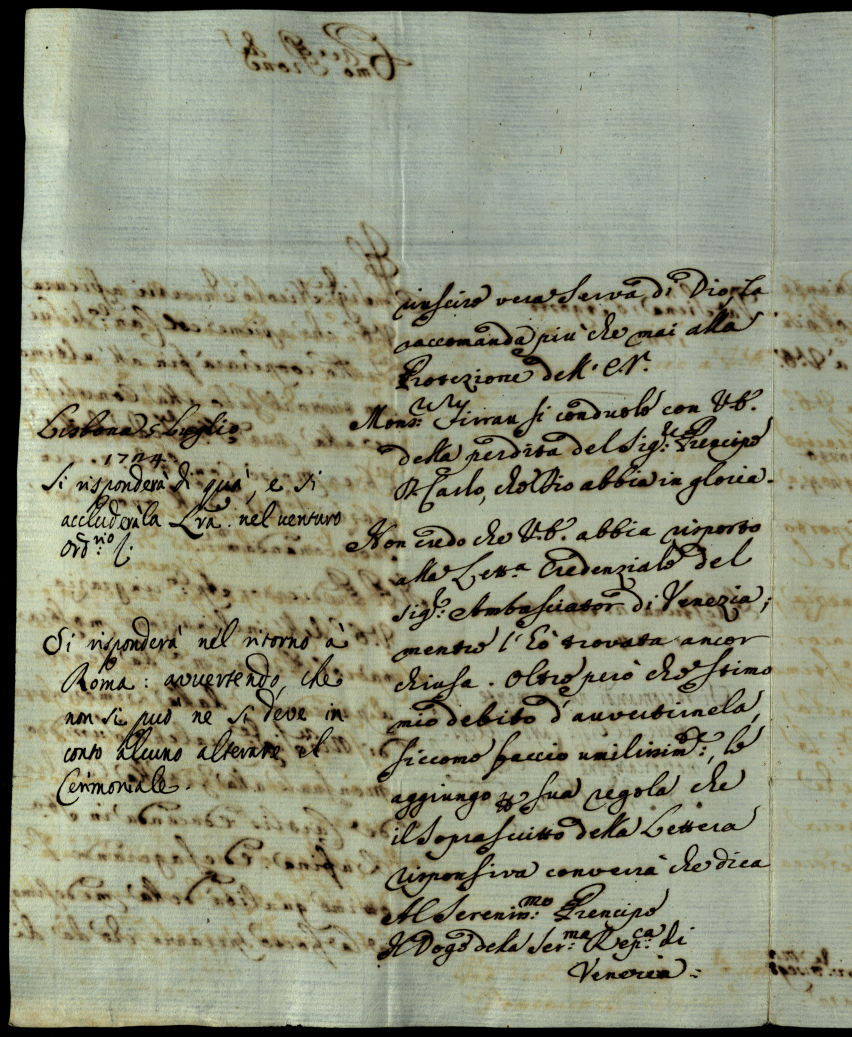 riuscire vera Serva di Dio, la
raccomanda più che mai alla
Protezione dell' E.V.
Lisbona 5 Luglio
1724.
Si risponderà di quà, e si
accluderà la Lrã. nel venturo
Ord.rio
Mons.r Firrau si conduole con V.E.
della perdita del Sig.r Prencipe
D. Carlo, che Dio abbia in gloria.
Non credo che V.E. abbia risposto
alla Lett.a Credenziale del
Sig.r Ambasciator di Venezia;
mentre l'hò trovata ancor
chiusa. Oltre però che stimo
mio debito d'avvertirnela,
siccome faccio umilissim.te, le
aggiungo p sua regola che
il Soprascritto della Lettera
responsiva converrà che dica
Al Serenis.mo Prencipe
Il Doge della Ser.ma Rep.ca di
Venezia.
Si risponderà nel ritorno à
Roma: avvertendo, che
non si può ne si deve in
conto alcuno alterare il
Cerimoniale.